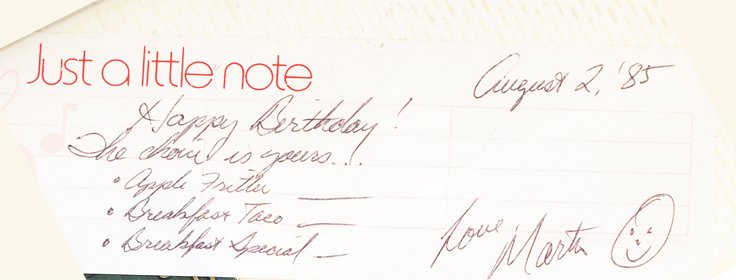 Just a little note
August 2, '85
Happy Birthday!
The choice is yours...
• Apple Fritter
• Breakfast Taco
• Breakfast Special
Love Martin